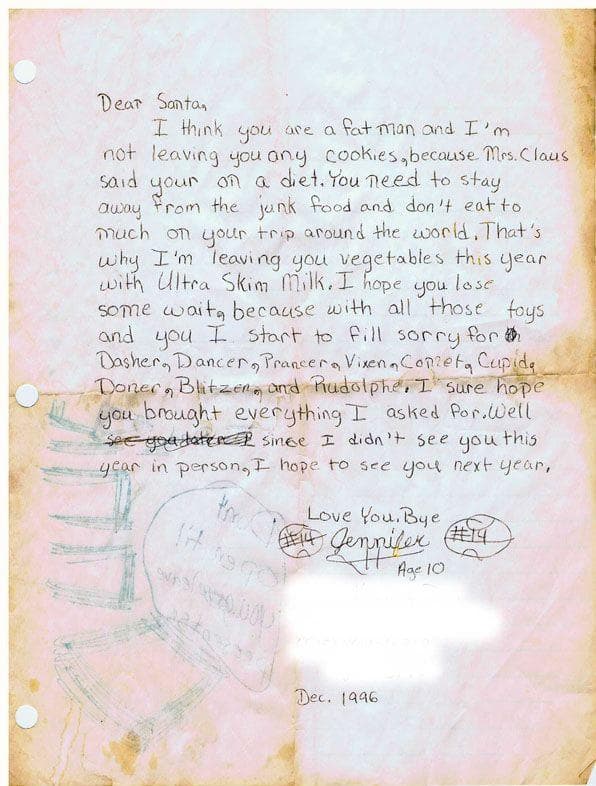 Dear Santa,
I think you are a fat man and I'm
not leaving you any cookies, because Mrs. Claus
said your on a diet. You need to stay
away from the junk food and don't eat to
much on your trip around the world. That's
why I'm leaving you vegetables this year
with Ultra Skim Milk. I hope you lose
some wait, because with all those toys
and you I start to fill sorry for
Dasher, Dancer, Prancer, Vixen, Comet, Cupid,
Doner, Blitzen, and Rudolphe. I sure hope
you brought everything I asked for. Well
see you later I since I didn't see you this
year in person, I hope to see you next year.
Love You, Bye
#14 Jennifer #14
Age 10
Dec. 1996
Don't
open til